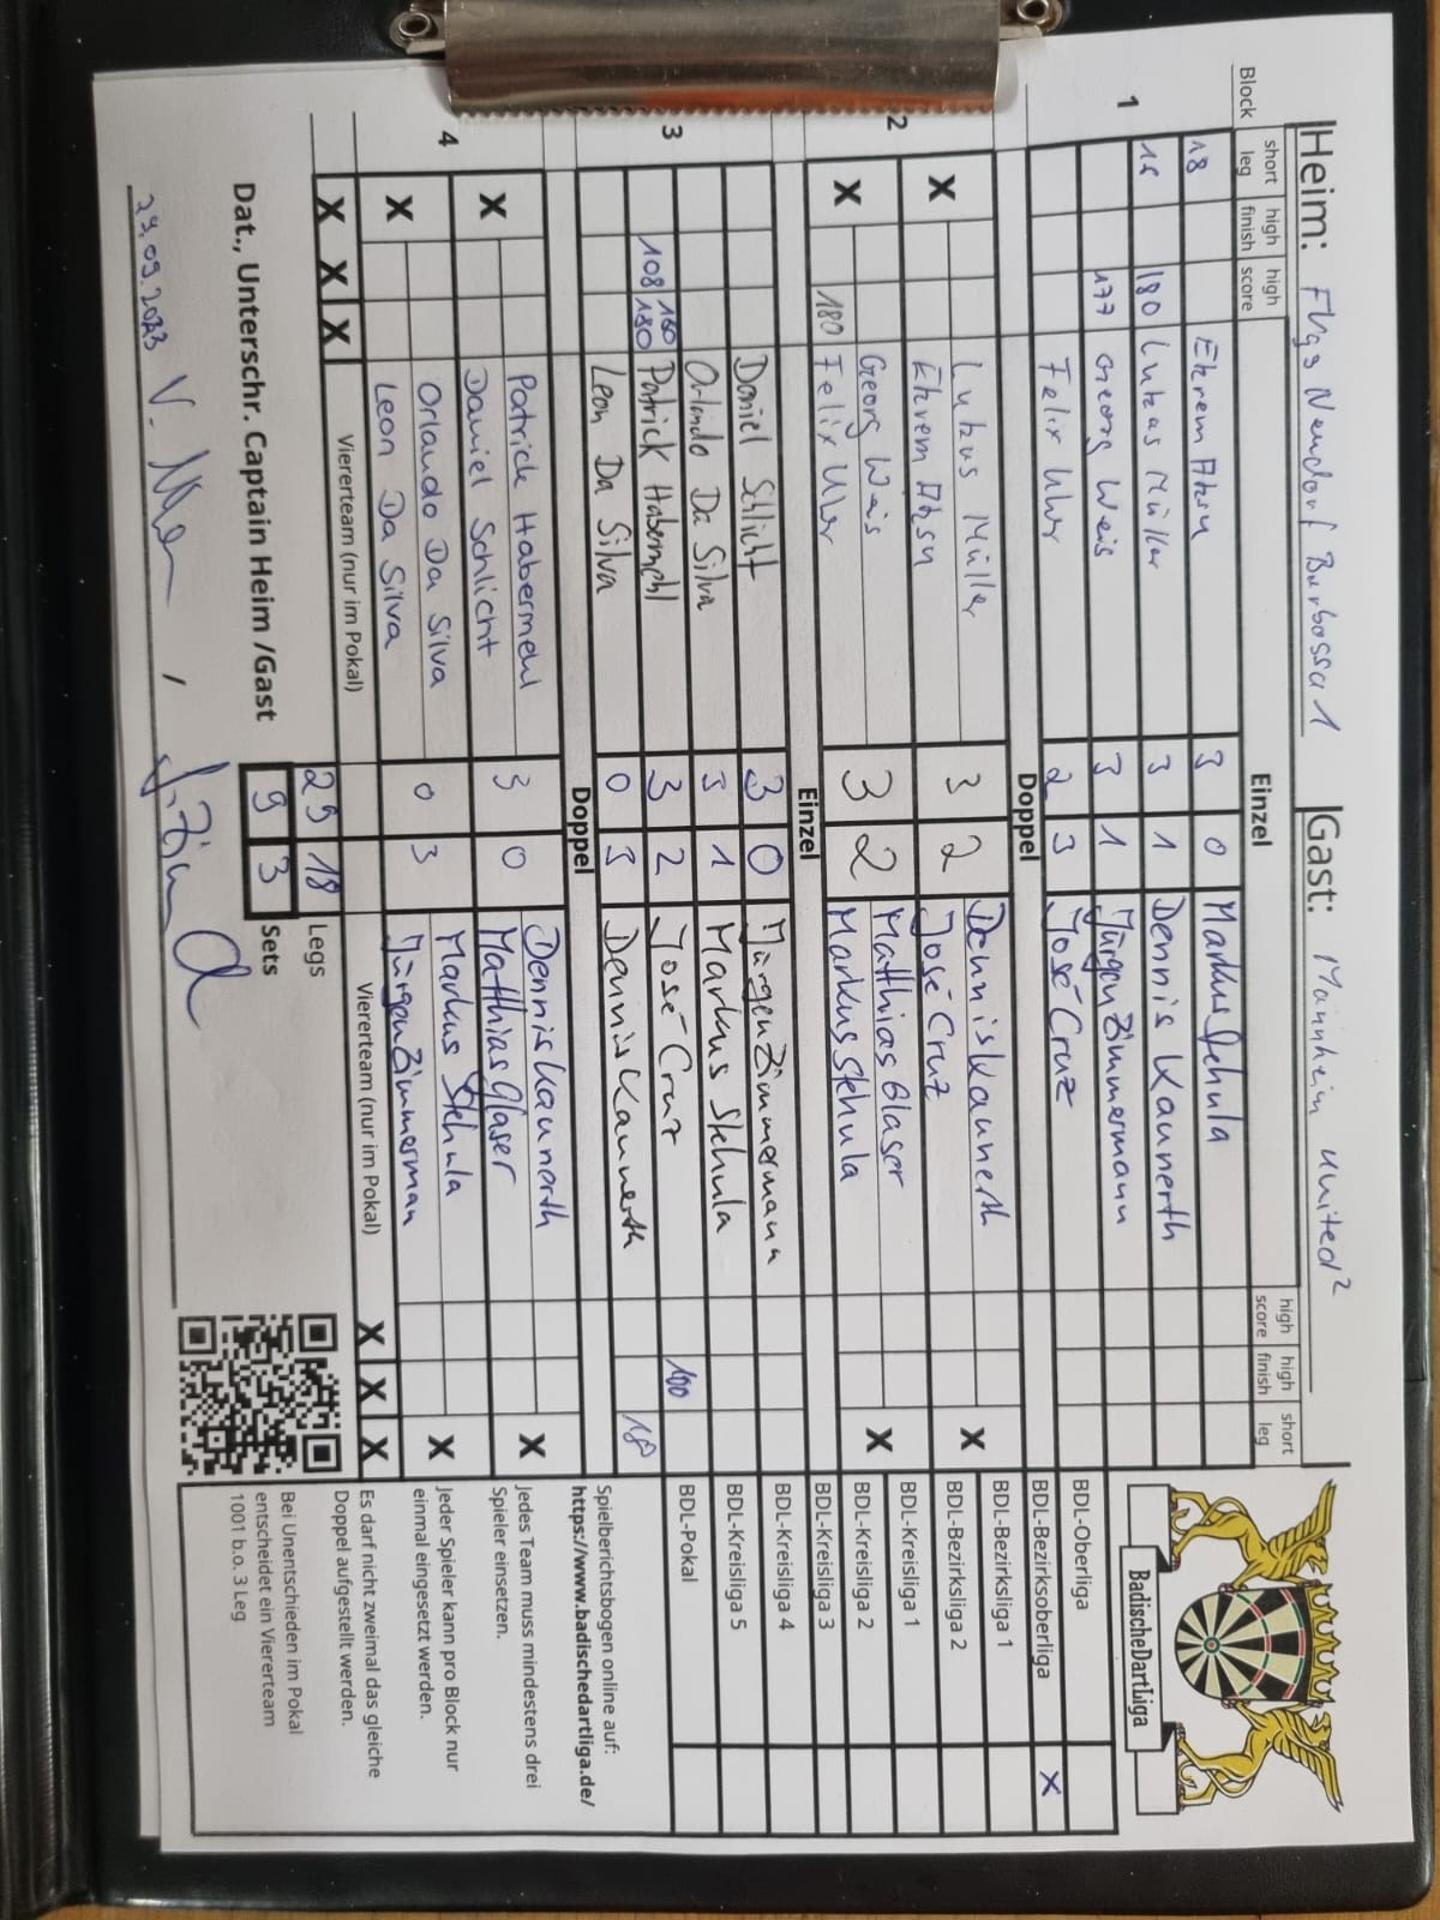 Heim: Flygs Neudorf Barbossa 1 Gast: Mannheim United²
Block short leg high finish high score Einzel high score high finish short leg
1
18 Ekrem Aksu 3 0 Markus Stehula
16 180 Lukas Müller 3 1 Dennis Kaunerth
177 Georg Weis 3 1 Jürgen Zimmermann
Felix Uhr 2 3 José Cruz
Doppel
2
X Lukas Müller 3 2 Dennis Kaunerth X
Ekrem Aksu José Cruz
X Georg Weis 3 2 Matthias Glaser X
180 Felix Uhr Markus Stehula
Einzel
3
Daniel Schlicht 3 0 Jürgen Zimmermann
Orlando Da Silva 3 1 Markus Stehula
108 180 180 Patrick Habermehl 3 2 José Cruz 100
Leon Da Silva 0 3 Dennis Kaunerth 18
Doppel
4
X Patrick Habermehl 3 0 Dennis Kaunerth X
Daniel Schlicht Matthias Glaser
X Orlando Da Silva 0 3 Markus Stehula X
Leon Da Silva Jürgen Zimmerman
X X X Viererteam (nur im Pokal) Viererteam (nur im Pokal) X X X
29 18 Legs
Dat., Unterschr. Captain Heim /Gast 9 3 Sets
29.09.2023
BadischeDartLiga
BDL-Oberliga
BDL-Bezirksoberliga X
BDL-Bezirksliga 1
BDL-Bezirksliga 2
BDL-Kreisliga 1
BDL-Kreisliga 2
BDL-Kreisliga 3
BDL-Kreisliga 4
BDL-Kreisliga 5
BDL-Pokal
Spielberichtsbogen online auf:
https://www.badischedartliga.de/
Jedes Team muss mindestens drei
Spieler einsetzen.
Jeder Spieler kann pro Block nur
einmal eingesetzt werden.
Es darf nicht zweimal das gleiche
Doppel aufgestellt werden.
Bei Unentschieden im Pokal
entscheidet ein Viererteam
1001 b.o. 3 Leg